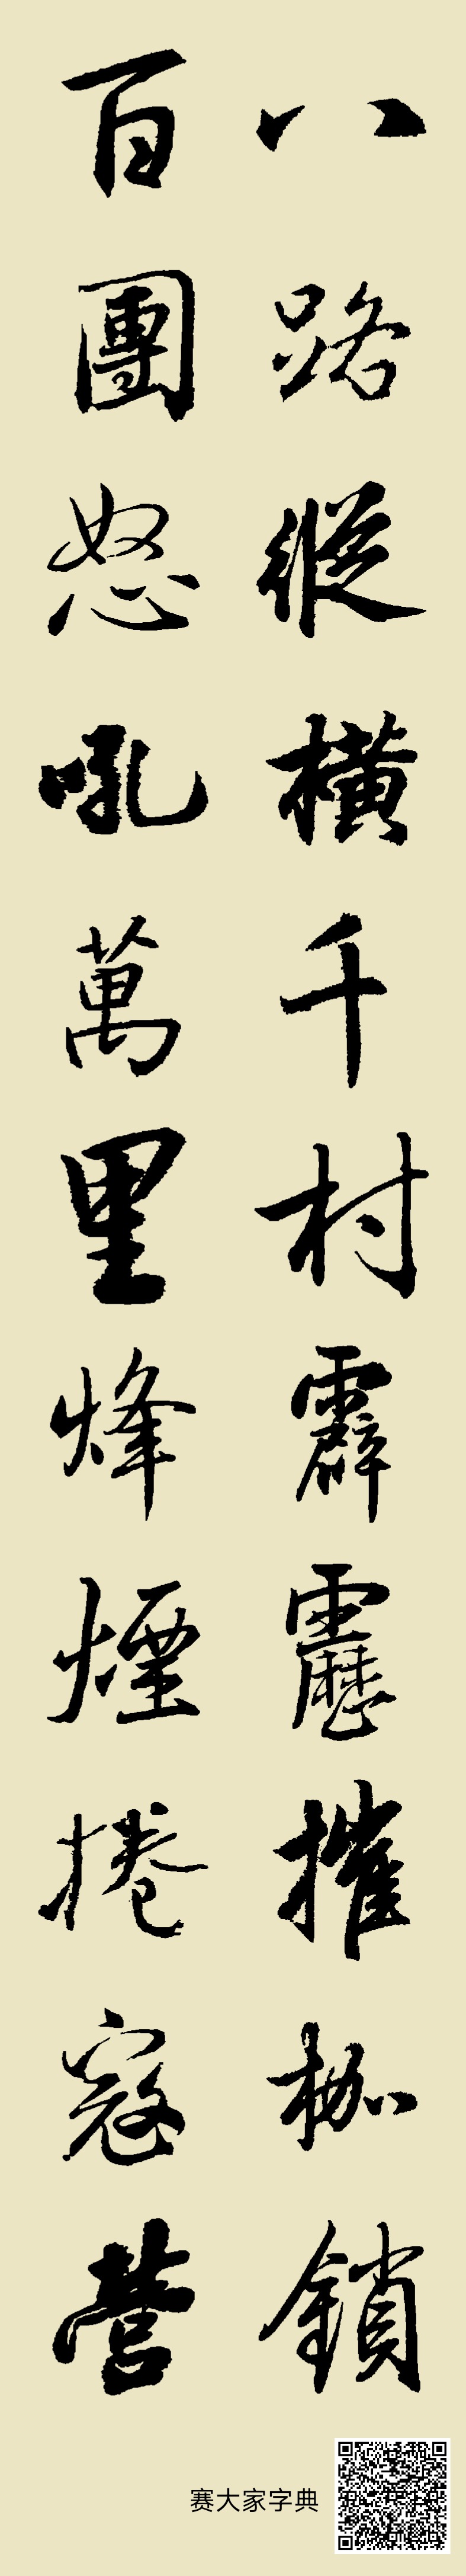 八路縱橫千村霹靂摧枷鎖
百團怒吼萬里烽煙捲寇營
赛大家字典